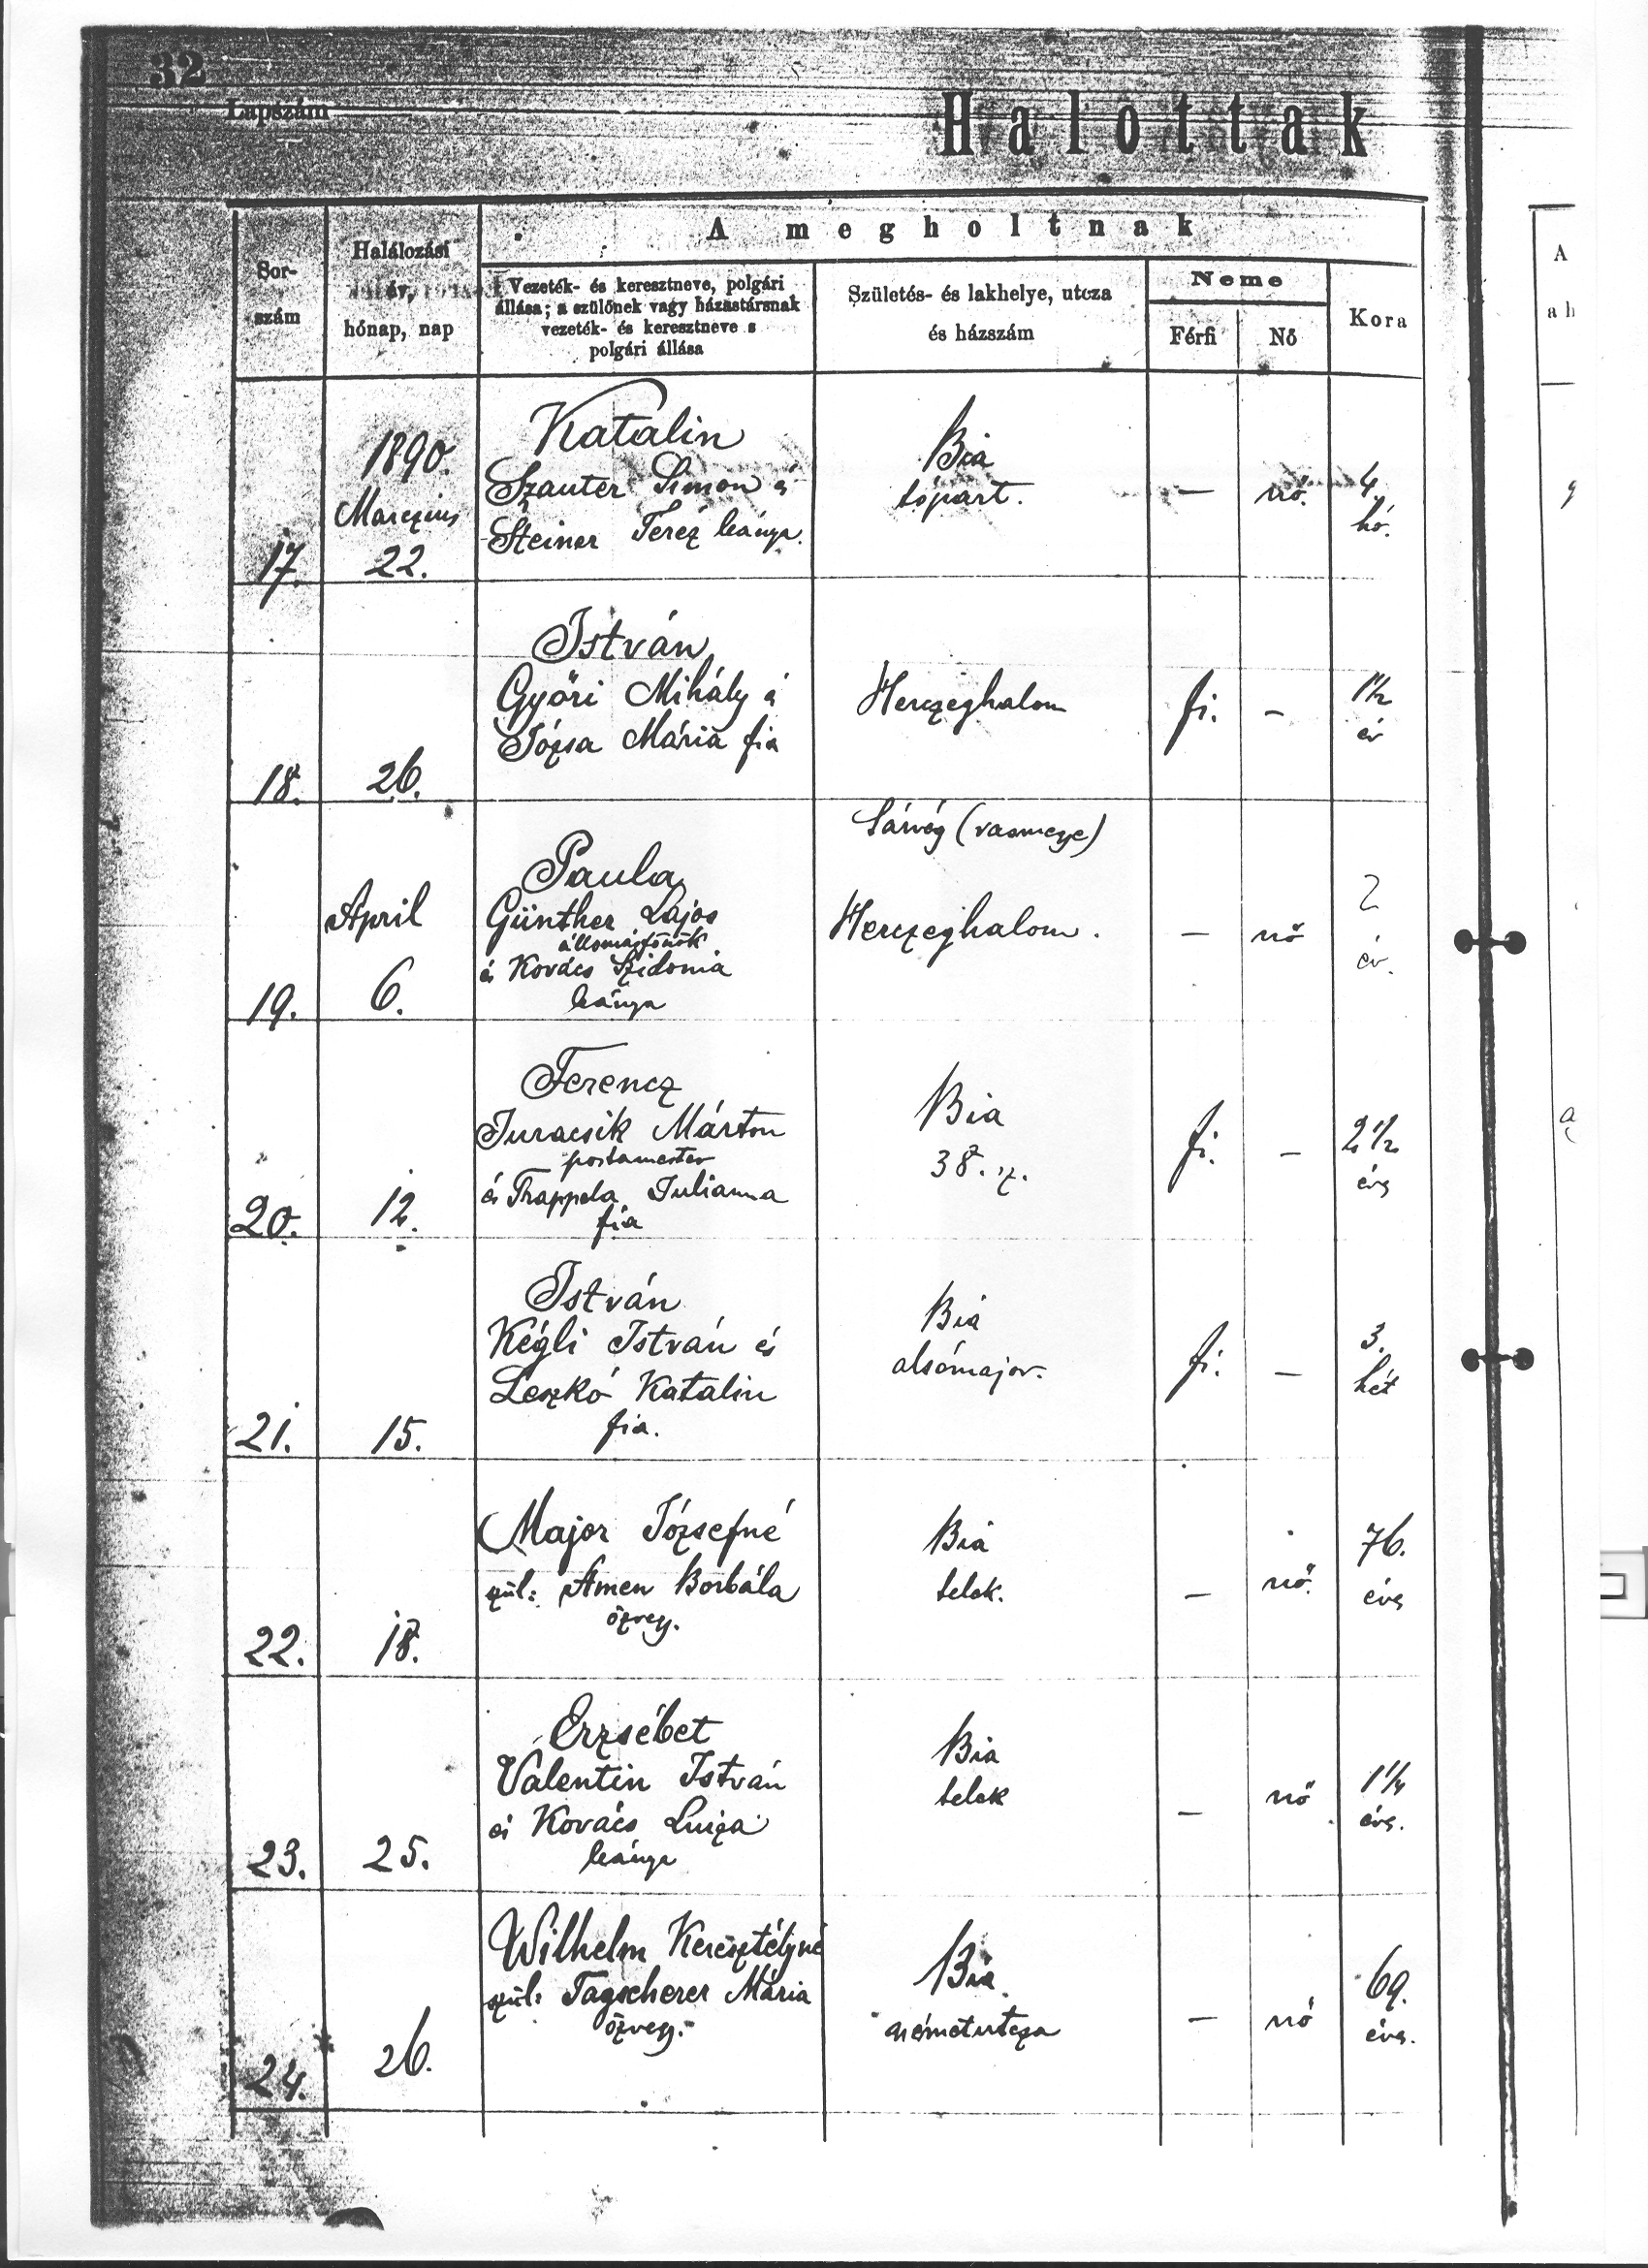 32
Lapszám
Halottak
A megholtnak
Sor-
szám
Halálozási
év,
hónap, nap
Vezeték- és keresztneve, polgári
állása; a szülőnek vagy házastársnak
vezeték- és keresztneve s
polgári állása
Születés- és lakhelye, utcza
és házszám
Neme
Férfi
Nő
Kora
17.
1890.
Marczius
22.
Katalin
Szauter Simon é
Steiner Teréz leánya.
Bia
tópart.
—
nő.
4.
hó.
18.
26.
István
Győri Mihály é
Józsa Mária fia
Herczeghalom
fi.
–
1½
év
19.
April
6.
Paula
Günther Lajos
állomásfőnök
és Kovács Szidonia
leánya
Sárvég (vasmegye)
Herczeghalom.
–
nő
2
év.
20.
12.
Ferencz
Juracsik Márton
postamester
és Trappela Julianna
fia
Bia
38. sz.
fi.
–
2½
éves
21.
15.
István
Kégli István és
Leszkó Katalin
fia.
Bia
alsómajor.
fi.
–
3.
hét
22.
18.
Major Józsefné
szül: Amen Borbála
özvegy.
Bia
telek.
–
nő.
76.
éves
23.
25.
Erzsébet
Valentin István
és Kovács Luiza
leánya
Bia
telek
–
nő
1¼
éves.
24.
26.
Wilhelm Keresztélyné
szül: Tagscherer Mária
özvegy.
Bia
németutcza
–
nő
69.
éves.
A
a h